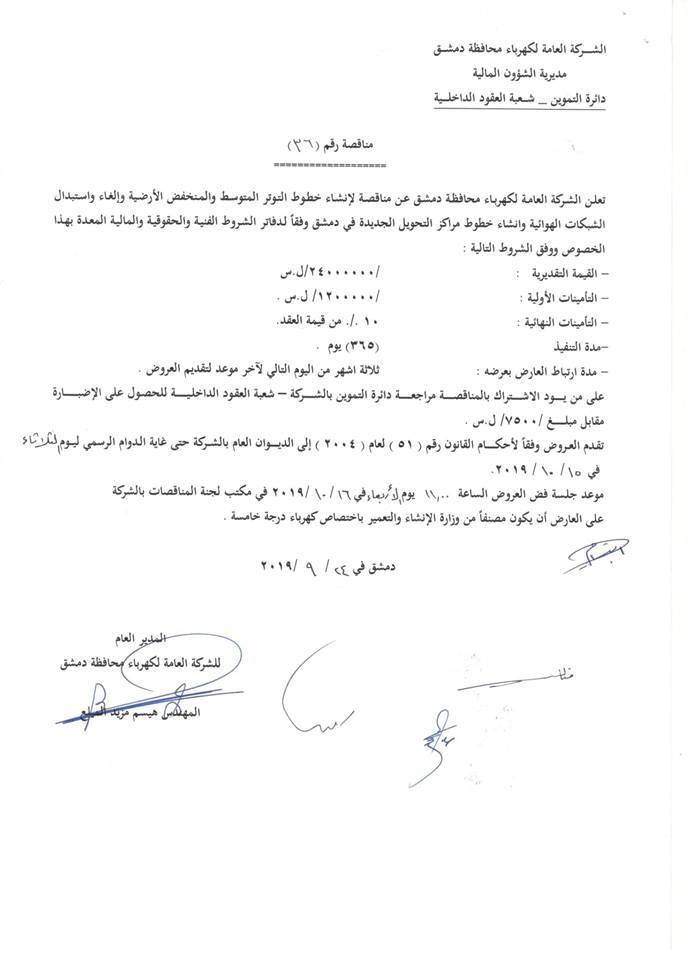 الشركة العامة لكهرباء محافظة دمشق
مديرية الشؤون المالية
دائرة التموين _ شعبة العقود الداخلية
مناقصة رقم (٣٦)
===================
تعلن الشركة العامة لكهرباء محافظة دمشق عن مناقصة لإنشاء خطوط التوتر المتوسط والمنخفض الأرضية وإلغاء واستبدال
الشبكات الهوائية وانشاء خطوط مراكز التحويل الجديدة في دمشق وفقاً لدفاتر الشروط الفنية والحقوقية والمالية المعدة بهذا
الخصوص ووفق الشروط التالية :
– القيمة التقديرية : /٢٤٠٠٠٠٠٠/ل.س
– التأمينات الأولية : /١٢٠٠٠٠٠/ ل.س .
– التأمينات النهائية : ١٠ ./. من قيمة العقد.
–مدة التنفيذ (٣٦٥) يوم .
– مدة ارتباط العارض بعرضه : ثلاثة اشهر من اليوم التالي لآخر موعد لتقديم العروض .
على من يود الاشتراك بالمناقصة مراجعة دائرة التموين بالشركة – شعبة العقود الداخلية للحصول على الإضبارة
مقابل مبلغ /٧٥٠٠/ ل.س .
تقدم العروض وفقاً لأحكام القانون رقم ( ٥١ ) لعام ( ٢٠٠٤ ) إلى الديوان العام بالشركة حتى غاية الدوام الرسمي ليوم الثلاثاء
في ١٥ / ١٠ / ٢٠١٩.
موعد جلسة فض العروض الساعة ١١,٠٠ يوم الأربعاء في ١٦ / ١٠ / ٢٠١٩ في مكتب لجنة المناقصات بالشركة
على العارض أن يكون مصنفاً من وزارة الإنشاء والتعمير باختصاص كهرباء درجة خامسة .
دمشق في ٢٤ / ٩ / ٢٠١٩
المدير العام
للشركة العامة لكهرباء محافظة دمشق
المهندس هيسم مزيد